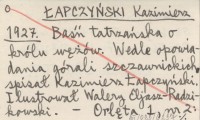 ŁAPCZYŃSKI Kazimierz
1927. Baśń tatrzańska o
królu wężów. Wedle opowia-
dania górali szczawnickich
spisał Kazimierz Łapczyński.
Ilustrował Walery Eljasz-Radzi-
kowski. - Orlęta 1, nr 2.